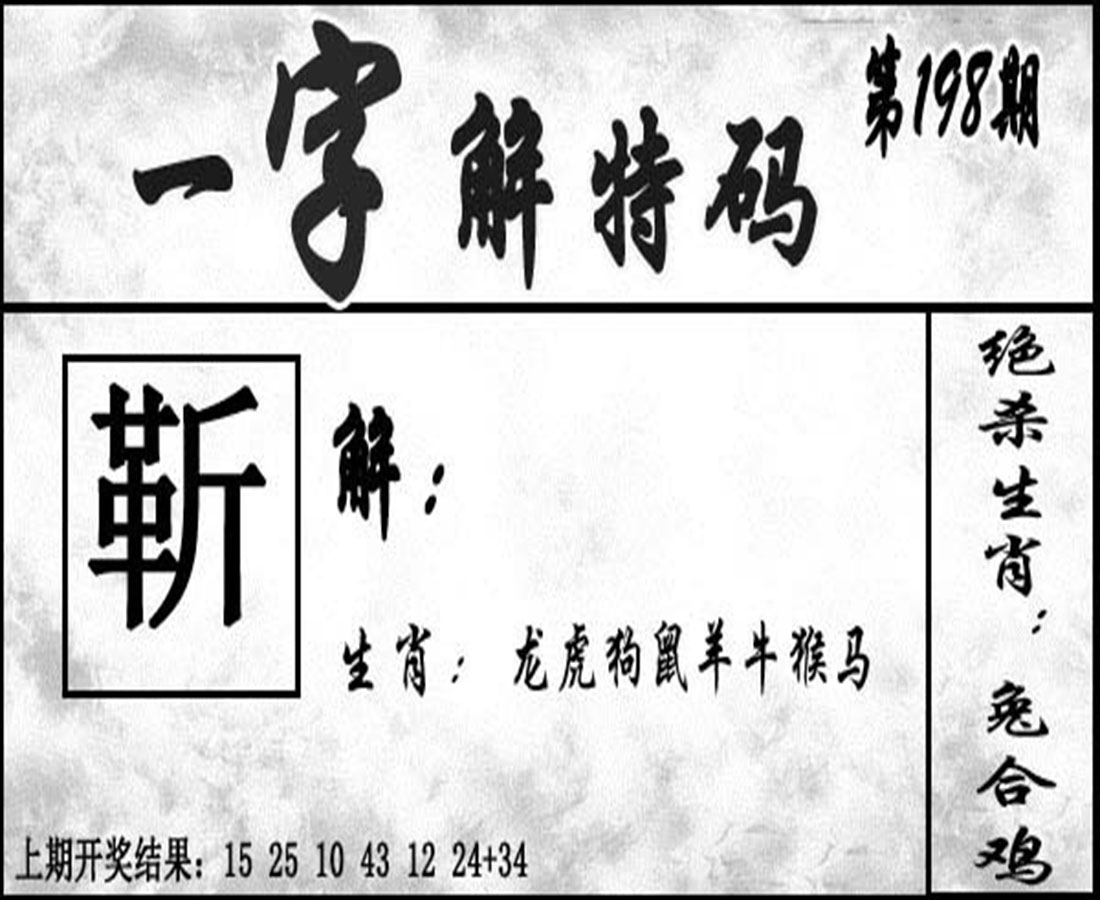 一字解特码
第198期
靳
解：
生肖：龙虎狗鼠羊牛猴马
绝杀生肖：兔合鸡
上期开奖结果：15 25 10 43 12 24+34